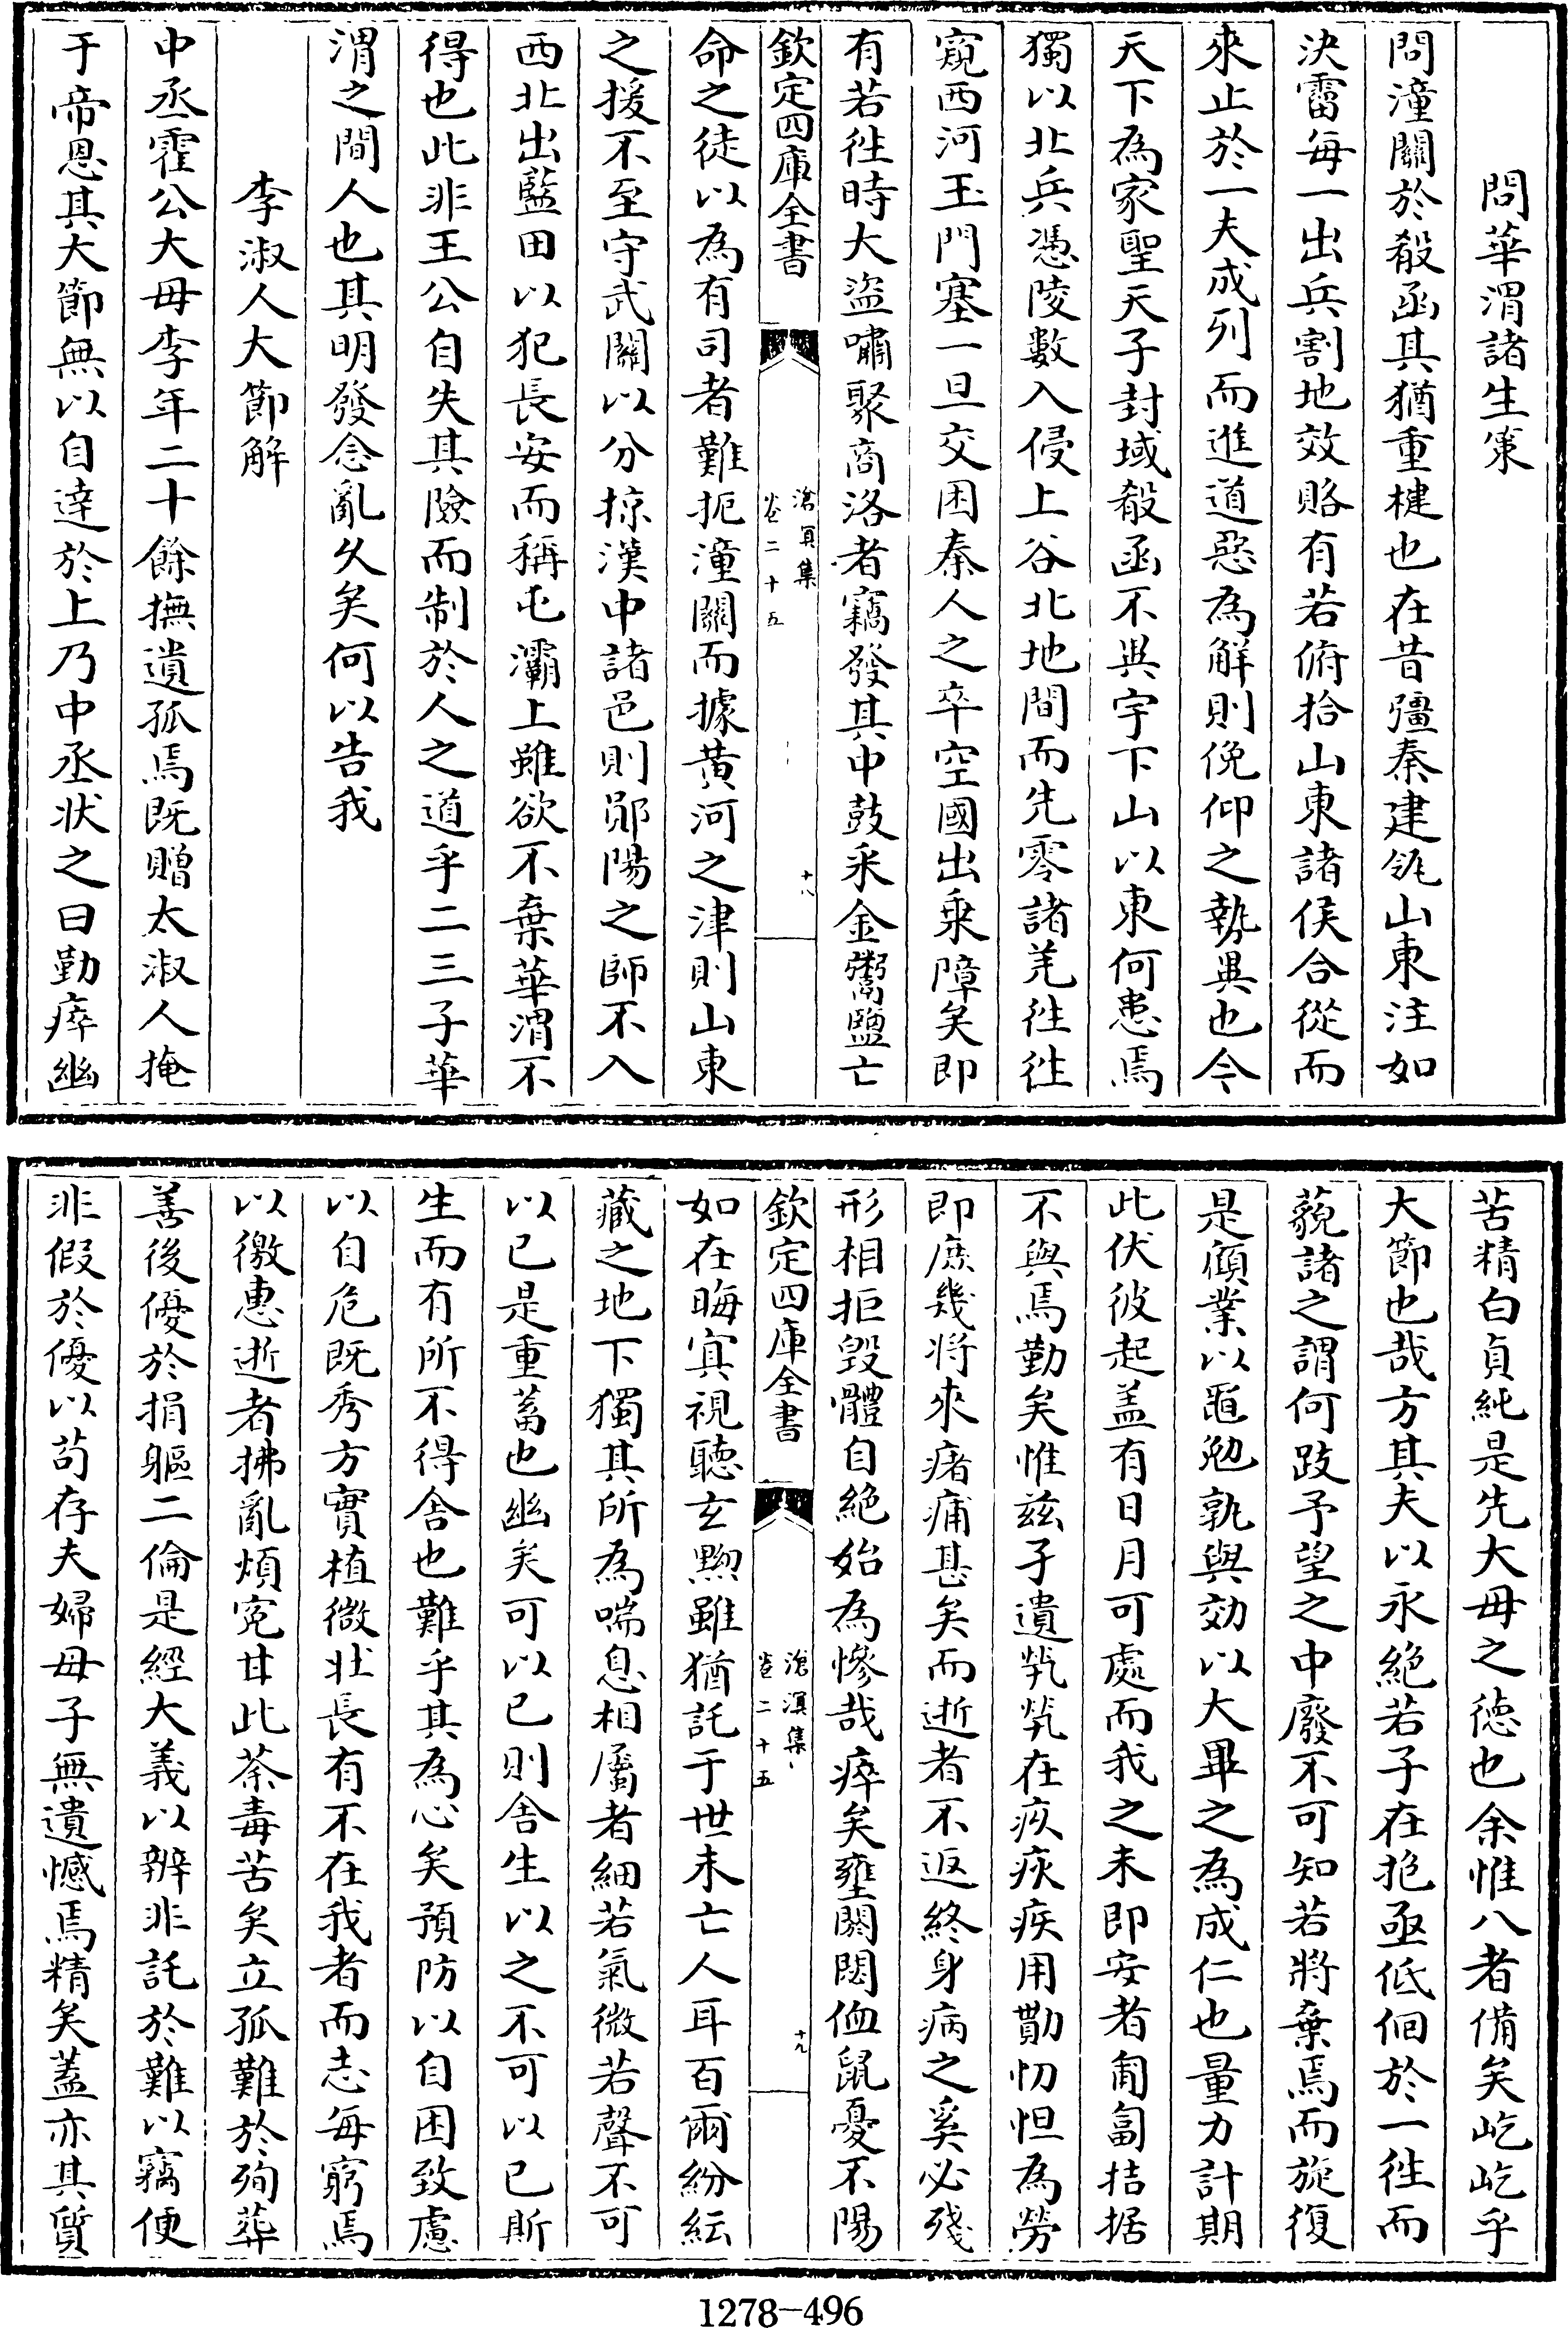 問華渭諸生策
問潼關於殽函其猶重楗也在昔彊秦建瓴山東注如
決霤每一出兵割地效賂有若俯拾山東諸侯合從而
來止於一夫成列而進道惡為解則俛仰之勢異也今
天下為家聖天子封域殽函不異宇下山以東何患焉
獨以北兵憑陵數入侵上谷北地間而先零諸羌徃徃
窺西河玉門塞一旦交困秦人之卒空國出乗障矣即
有若徃時大盗嘯聚商洛者竊發其中鼓釆金鬻鹽亡
欽定四庫全書
滄溟集
卷二十五
十八
命之徒以為有司者難扼潼關而據黄河之津則山東
之援不至守武關以分掠漢中諸邑則鄖陽之師不入
西北出藍田以犯長安而稱屯灞上雖欲不棄華渭不
得也此非王公自失其險而制於人之道乎二三子華
渭之間人也其明發念亂久矣何以告我
李淑人大節解
中丞霍公大母李年二十餘撫遺孤焉既贈太淑人掩
于帝恩其大節無以自逹於上乃中丞状之曰勤瘁幽
苦精白貞純是先大母之徳也余惟八者備矣屹屹乎
大節也哉方其夫以永絶若子在抱亟低佪於一徃而
藐諸之謂何跂予望之中廢不可知若將棄焉而旋復
是傾業以黽勉孰與効以大畢之為成仁也量力計期
此伏彼起盖有日月可處而我之未即安者匍匐拮据
不與焉勤矣惟兹孑遺煢煢在疚疢疾用勩忉怛為勞
即庶幾將來瘏痡甚矣而逝者不返終身病之奚必殘
形相拒毁體自絶始為慘哉瘁矣壅閼閟侐鼠憂不陽
欽定四庫全書
滄溟集
卷二十五
十九
如在晦㝠視聽玄黙雖猶託于世未亡人耳百爾紛紜
藏之地下獨其所為喘息相屬者細若氣微若聲不可
以已是重蓄也幽矣可以已則舎生以之不可以已斯
生而有所不得舎也難乎其為心矣預防以自困致慮
以自危既秀方實植微壯長有不在我者而志每窮焉
以徼惠逝者拂亂煩寃甘此荼毒苦矣立孤難於殉葬
善後優於捐軀二倫是經大義以辨非託於難以竊便
非假於優以苟存夫婦母子無遺憾焉精矣蓋亦其質
1278-496